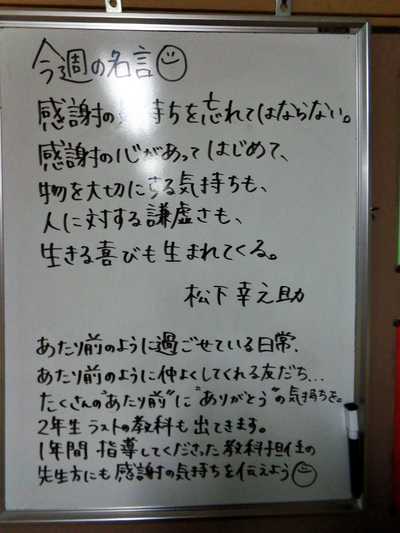 今週の名言
感謝の気持ちを忘れてはならない。
感謝の心があってはじめて、
物を大切にする気持ちも、
人に対する謙虚さも、
生きる喜びも生まれてくる。
松下幸之助
あたり前のように過ごせている日常、
あたり前のように仲よくしてくれる友だち…
たくさんの"あたり前"に"ありがとう"の気持ちを。
2年生ラストの教科も出てきます。
1年間指導してくださった教科担任の
先生方にも感謝の気持ちを伝えよう